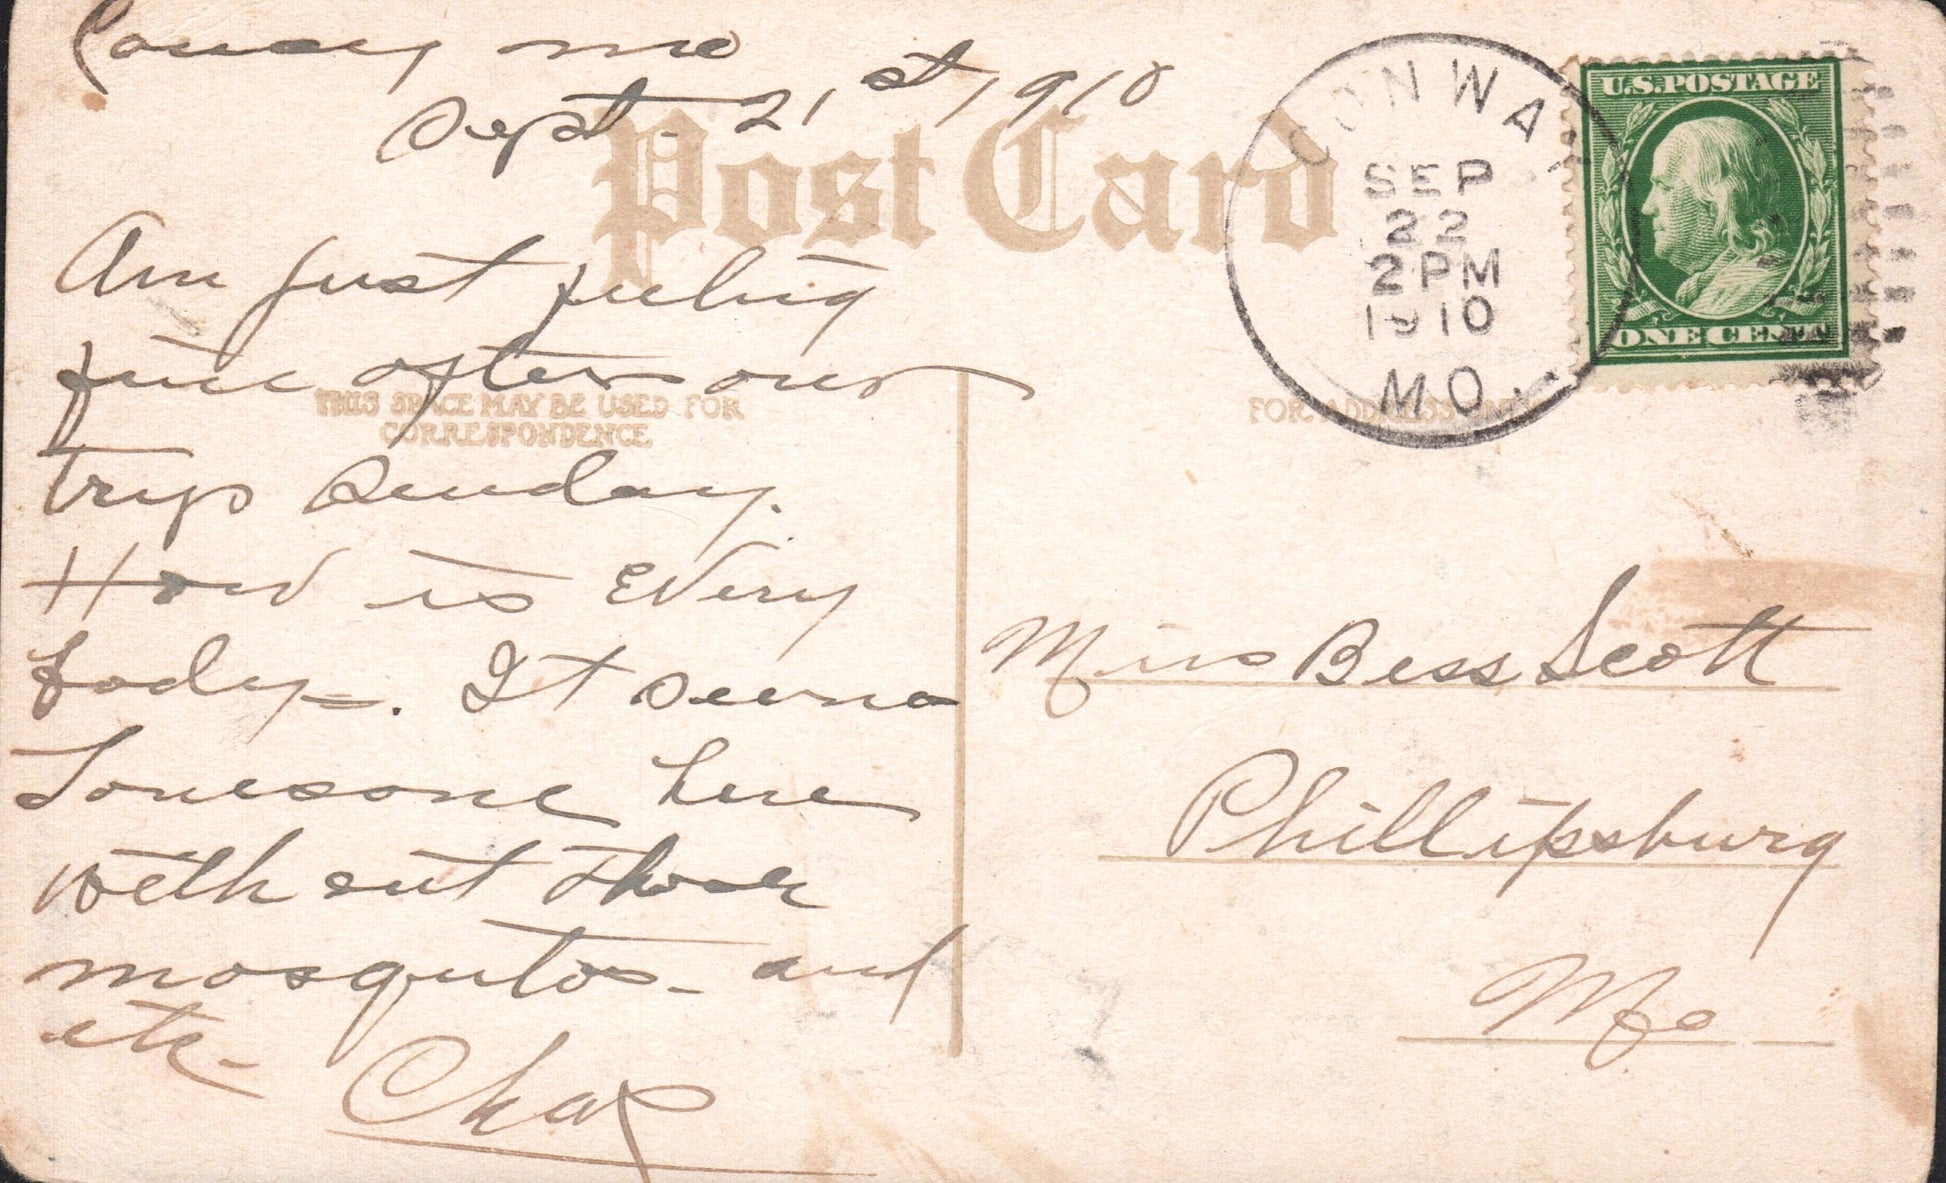 Mo
Sept. 21st, 1910
Post Card
CONWAY
SEP
22
2 PM
1910
MO.
U.S. POSTAGE
ONE CENT
Am just feeling
fine after our
THIS SPACE MAY BE USED FOR
CORRESPONDENCE
trip Sunday.
How is Every
body=. It seems
Lonesome here
with out those
mosquitos - and
etc-
Chas
FOR ADDRESS ONLY
Miss Bess Scott
Phillipsburg
Mo